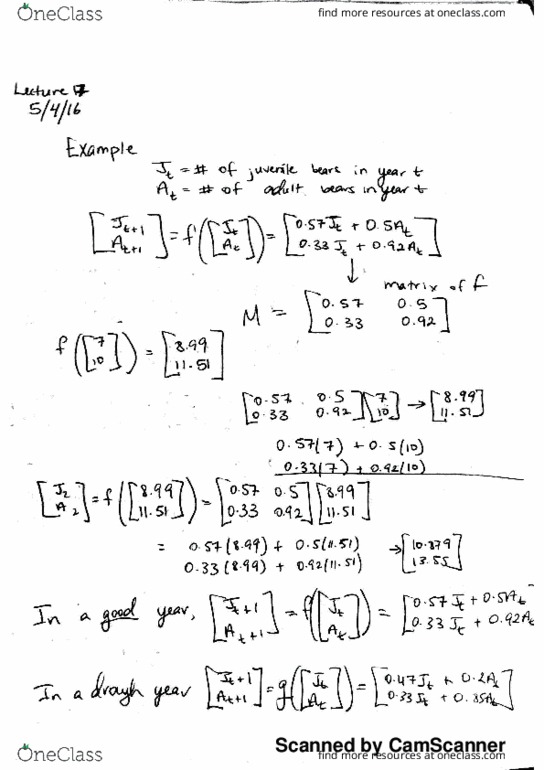 OneClass
find more resources at oneclass.com
Lecture 7
5/4/16
Example
J_t = # of juvenile bears in year t
A_t = # of adult bears in year t
[J_{t+1} A_{t+1}] = f([J_t A_t]) = [0.57J_t + 0.5A_t 0.33J_t + 0.92A_t]
↓ matrix of f
M = [0.57 0.5 0.33 0.92]
f([7 10]) = [8.99 11.51]
[0.57 0.5 0.33 0.92][7 10] → [8.99 11.51]
0.57(7) + 0.5(10)
0.33(7) + 0.92(10)
[J_2 A_2] = f([8.99 11.51]) = [0.57 0.5 0.33 0.92][8.99 11.51]
= 0.57(8.99) + 0.5(11.51) → [10.879 13.55]
0.33(8.99) + 0.92(11.51)
In a good year, [J_{t+1} A_{t+1}] = f([J_t A_t]) = [0.57J_t + 0.5A_t 0.33J_t + 0.92A_t
In a drough year [J_{t+1} A_{t+1}] = g([J_t A_t]) = [0.47J_t + 0.2A_t 0.33J_t + 0.85A_t]
Scanned by CamScanner
OneClass
find more resources at oneclass.com